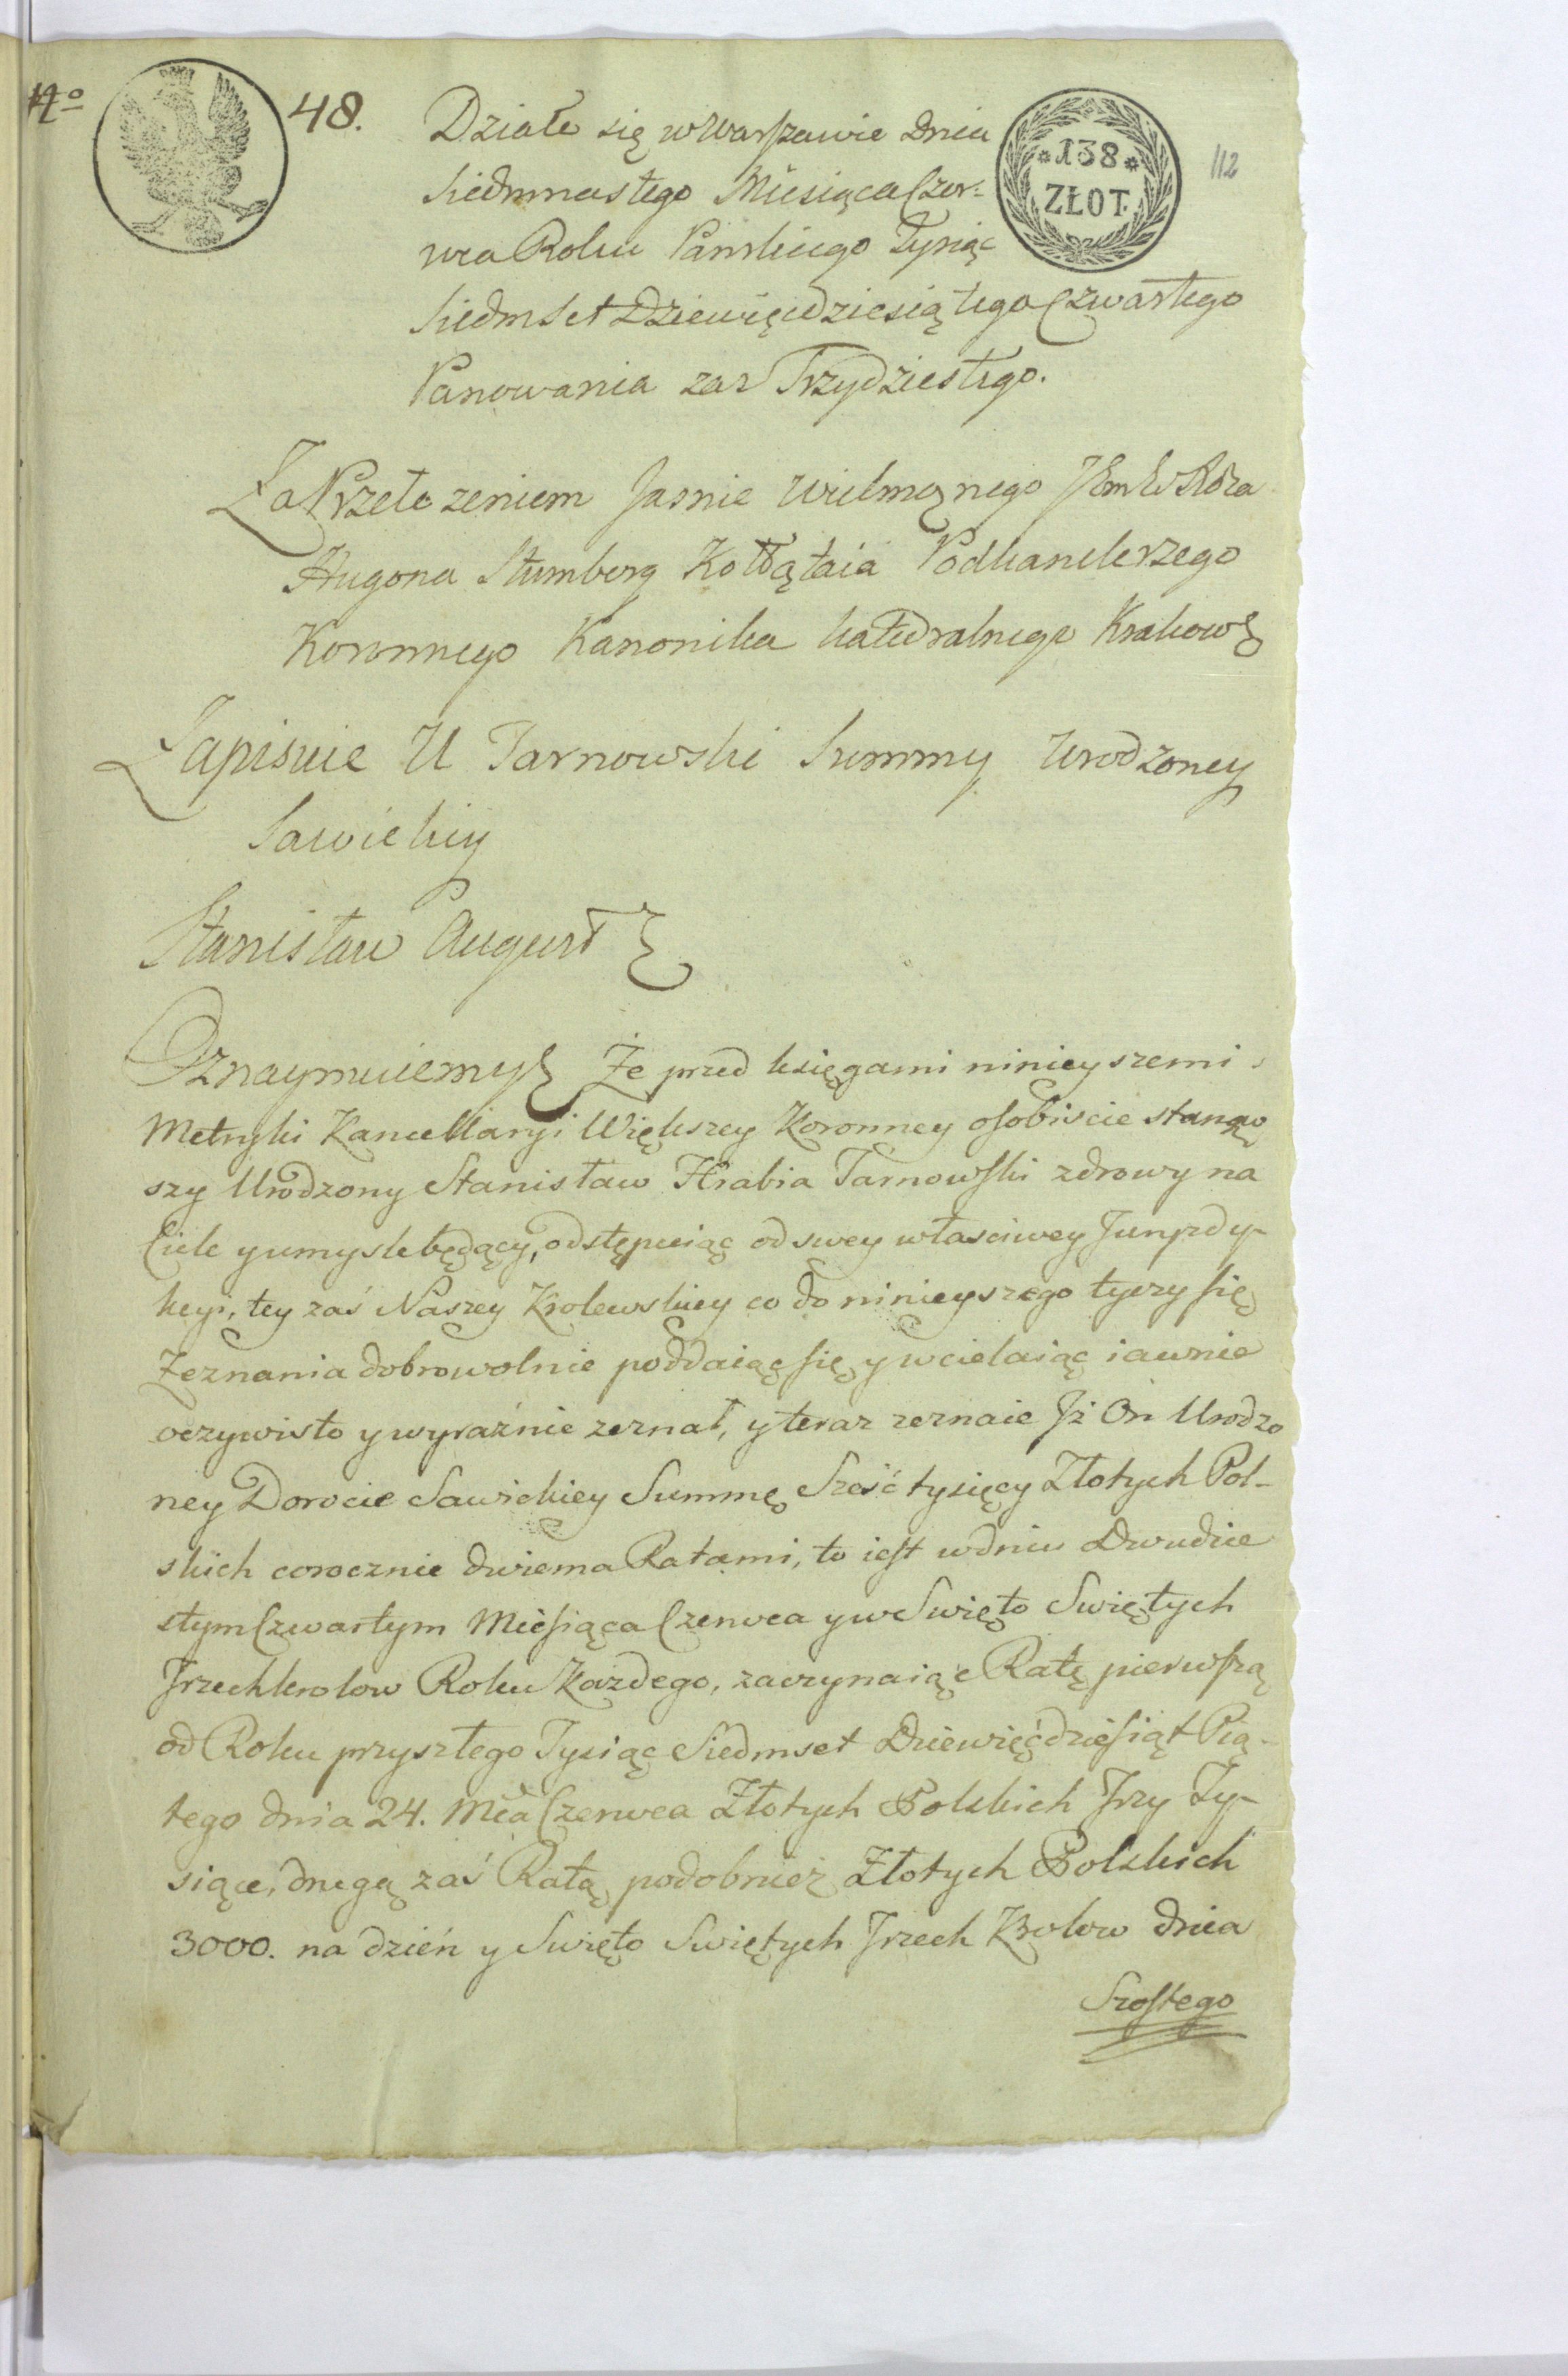 No 48.
138
ZŁOT.
112
Działo się w Warszawie Dnia
Siedmnastego Miesiąca Czer-
wca Roku Panskiego Tysiąc
Siedmset Dziewięcdziesiątego Czwartego
Panowania zas Trzydziestego.
Za Przełożeniem Jasnie Wielmoznego
Hugona Stumberg Kołłątaia Podkanclerzego
Koronnego Kanonika Katedralnego Krakow
Zapisuie U Tarnowski Summy Urodzoney
Sawickiy
Stanisław August
Oznaymuiemy Że przed księgami ninieyszemi
Metryki Kancellaryi Większey Koronney osobiscie stanąw
szy Urodzony Stanisław Hrabia Tarnowski zdrowy na
Ciele y umysle będący, odstępuiąc od swey własciwey Juryzdy-
kcyi, tey zaś Naszey Krolewskiey co do ninieyszego tyczy się
Zeznania dobrowolnie poddaiąc się y wcielaiąc iawnie
oczywisto y wyraźnie zeznał, y teraz zeznaie Jż On Urodzo
ney Dorocie Sawickiey Summę Sześć tysięcy Złotych Pol-
skich corocznie dwiema Ratami, to iest w dniu Dwudzie
stym Czwartym Miesiąca Czerwca y w Swięto Swiętych
Trzech krolow Roku Kazdego, zaczynaiąc Ratę pierwszą
od Roku przyszłego Tysiąc Siedmset Dziewięćdziesiąt Pią-
tego dnia 24. Mca Czerwca Złotych Polskich Trzy Ty-
siące, drugą zaś Ratą podobnież Złotych Polskich
3000. na dzień y Swięto Swiętych Trzech Krolow dnia
Szostego